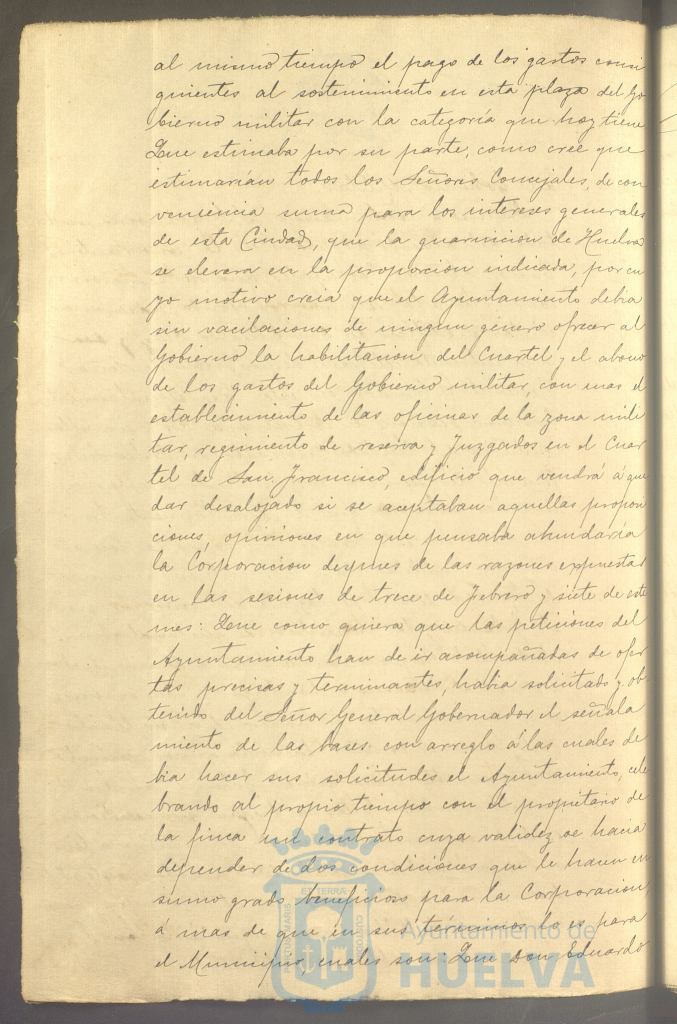 al mismo tiempo el pago de los gastos consi
guientes al sostenimiento en esta plaza del Go
bierno militar con la categoría que hoy tiene
Que estimaba por su parte, como cree que
estimarían todos los Señores Concejales, de con
veniencia suma para los intereses generales
de esta Ciudad, que la guarnicion de Huelva
se elevara en la proporcion indicada, por cu
yo motivo creia que el Ayuntamiento debia
sin vacilaciones de ningun género ofrecer al
Gobierno la habilitacion del Cuartel y el abono
de los gastos del Gobierno militar, con mas el
establecimiento de las oficinas de la zona mili
tar, regimiento de reserva y Juzgados en el Cuar
tel de San Francisco, edificio que vendrá á que
dar desalojado si se aceptaban aquellas proposi
ciones, opiniones en que pensaba abundaría
la Corporacion despues de las razones expuestas
en las sesiones de trece de Febrero y siete de este
mes: Que como quiera que las peticiones del
Ayuntamiento han de ir acompañadas de ofer
tas precisas y terminantes, habia solicitado y ob
tenido del Señor General Gobernador el señala
miento de las bases con arreglo á las cuales de
bia hacer sus solicitudes el Ayuntamiento, cele
brando al propio tiempo con el propietario de
la finca un contrato cuya validez se hacia
depender de dos condiciones que le hacen en
sumo grado beneficioso para la Corporacion,
á mas de que en sus términos lo es para
el Municipio, cuales son: Que Don Eduardo
Ayuntamiento de
HUELVA